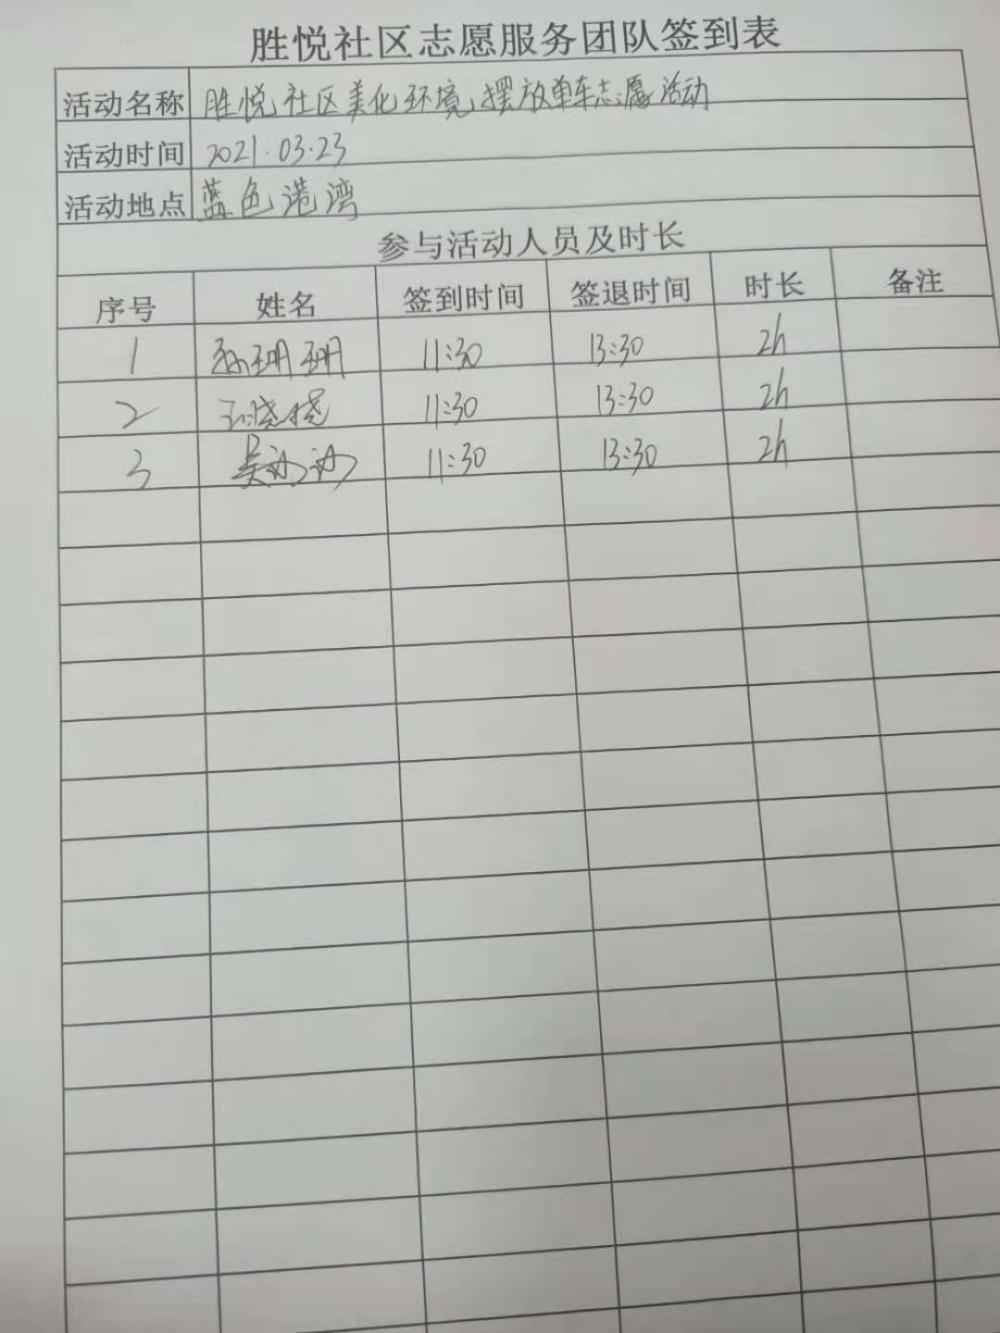 胜悦社区志愿服务团队签到表
活动名称 胜悦社区美化环境,摆放单车志愿活动
活动时间 2021.03.23
活动地点 蓝色港湾
参与活动人员及时长
序号 姓名 签到时间 签退时间 时长 备注
1 孙玥玥 11:30 13:30 2h
2 王晓晓 11:30 13:30 2h
3 吴 11:30 13:30 2h